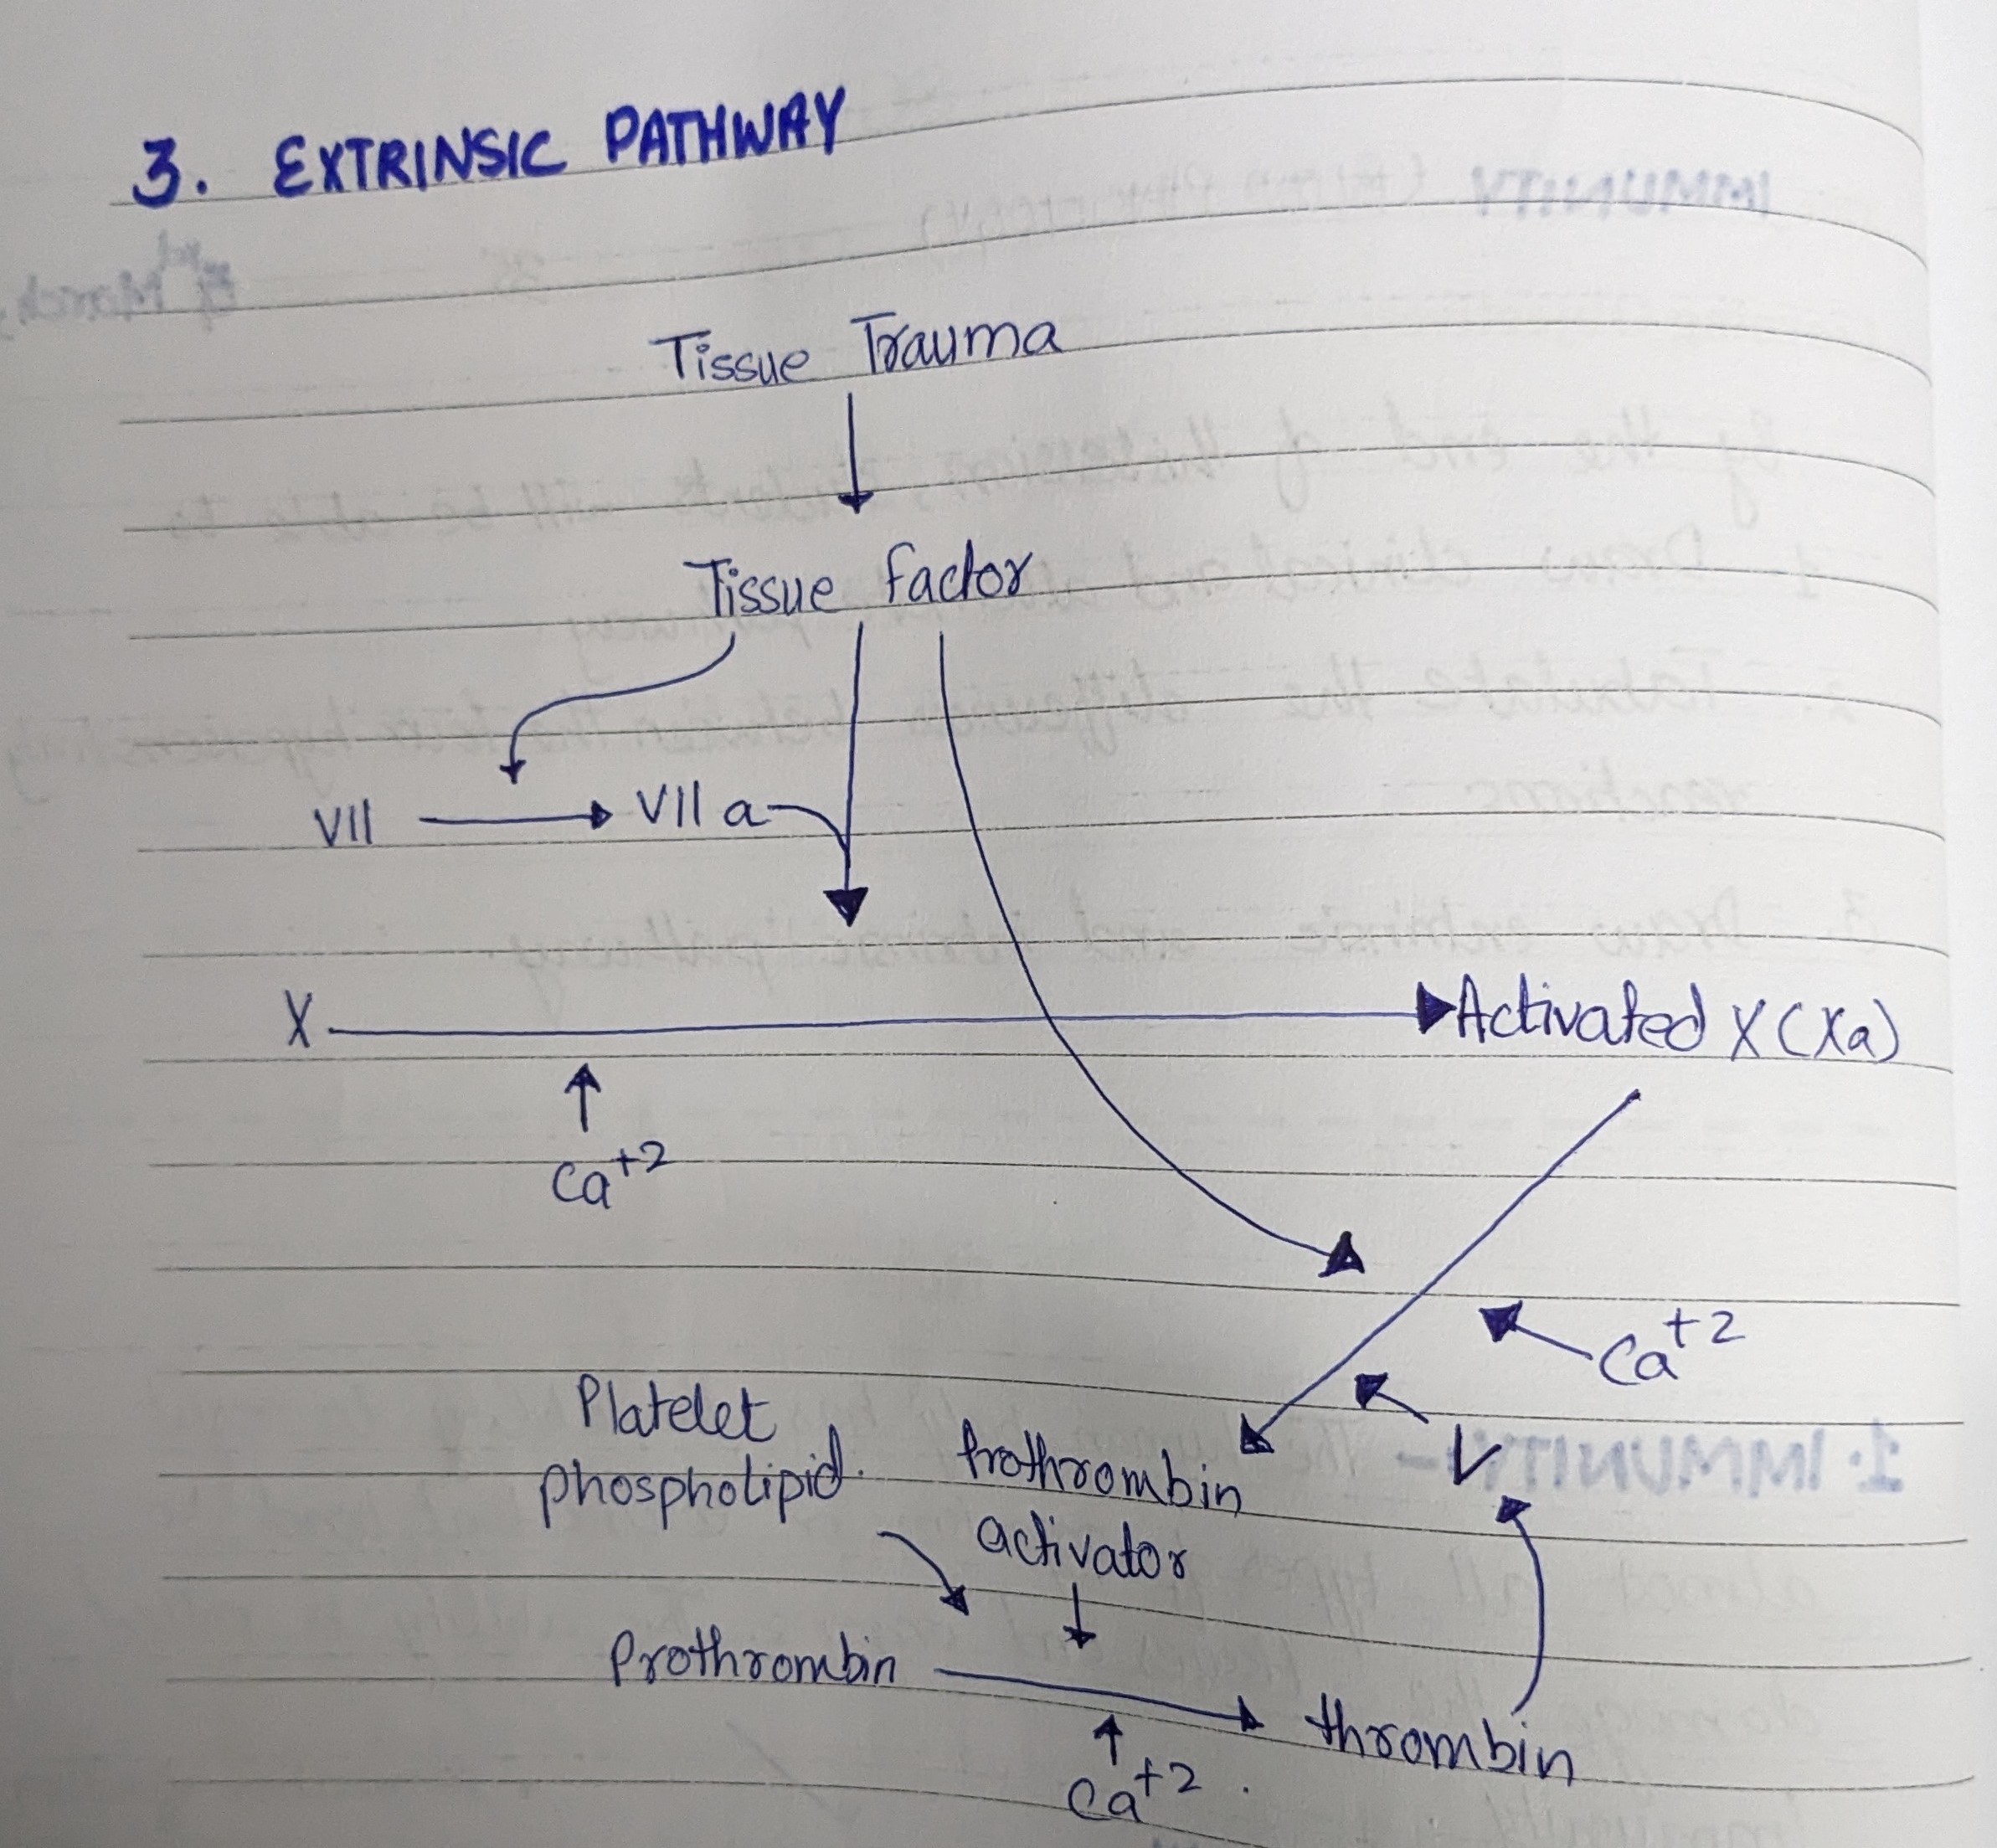 3. EXTRINSIC PATHWAY
Tissue Trauma
Tissue factor
VII
VII a
X
Activated X (Xa)
Ca+2
Ca+2
Platelet
phospholipid.
Prothrombin
activator
V
Prothrombin
thrombin
Ca+2.